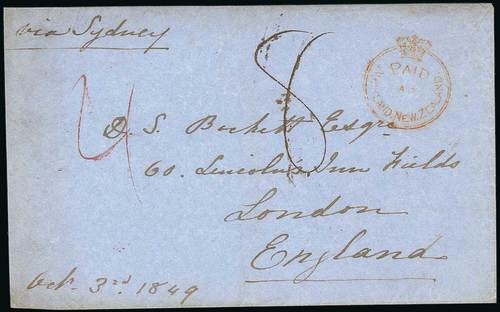 via Sydney
8
4
PAID
NEW ZEALAND
D. S. Bockett Esqre
60. Lincoln's Inn Fields
London
England
Oct. 3rd. 1849